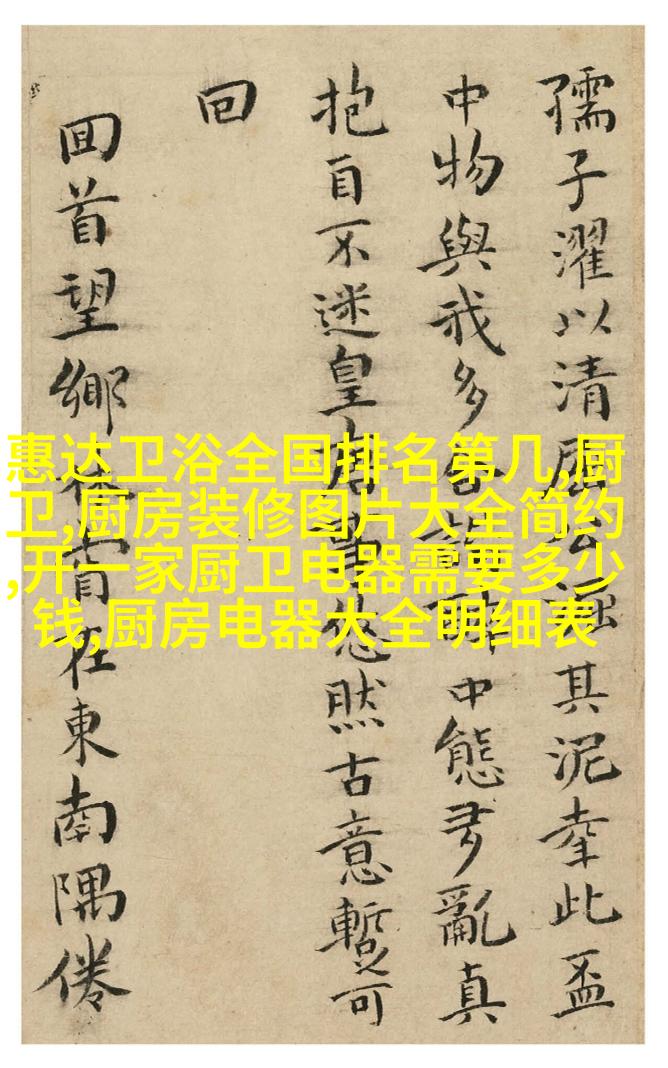 孺子濯以清其泥此盃
中物與我多中態多亂真
抱自不迷皇然古意暫可
回
囬首望鄉在東南隅倦
惠达卫浴全国排名第几,厨
卫,厨房装修图片大全简约
,开一家厨卫电器需要多少
钱,厨房电器大全明细表